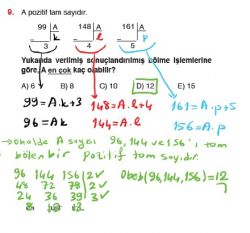 9. A pozitif tam sayıdır.
99 | A
k
3
148 | A
l
4
161 | A
p
5
Yukarıda verilmiş sonuçlandırılmış bölme işlemlerine
göre, A en çok kaç olabilir?
A) 6 B) 8 C) 10 D) 12 E) 15
99=A.k+3 148=A.l+4 161=A.p+5
96=Ak 144=A.l 156=A.p
→ onolde A sayısı 96, 144 ve 156'ı tam
bölen bir pozitif tam sayıdır.
96 144 156 | 2 ✓ Obeb(96,144,156)=12
48 72 78 | 2 ✓
24 36 39 | 3 ✓
8 12 13